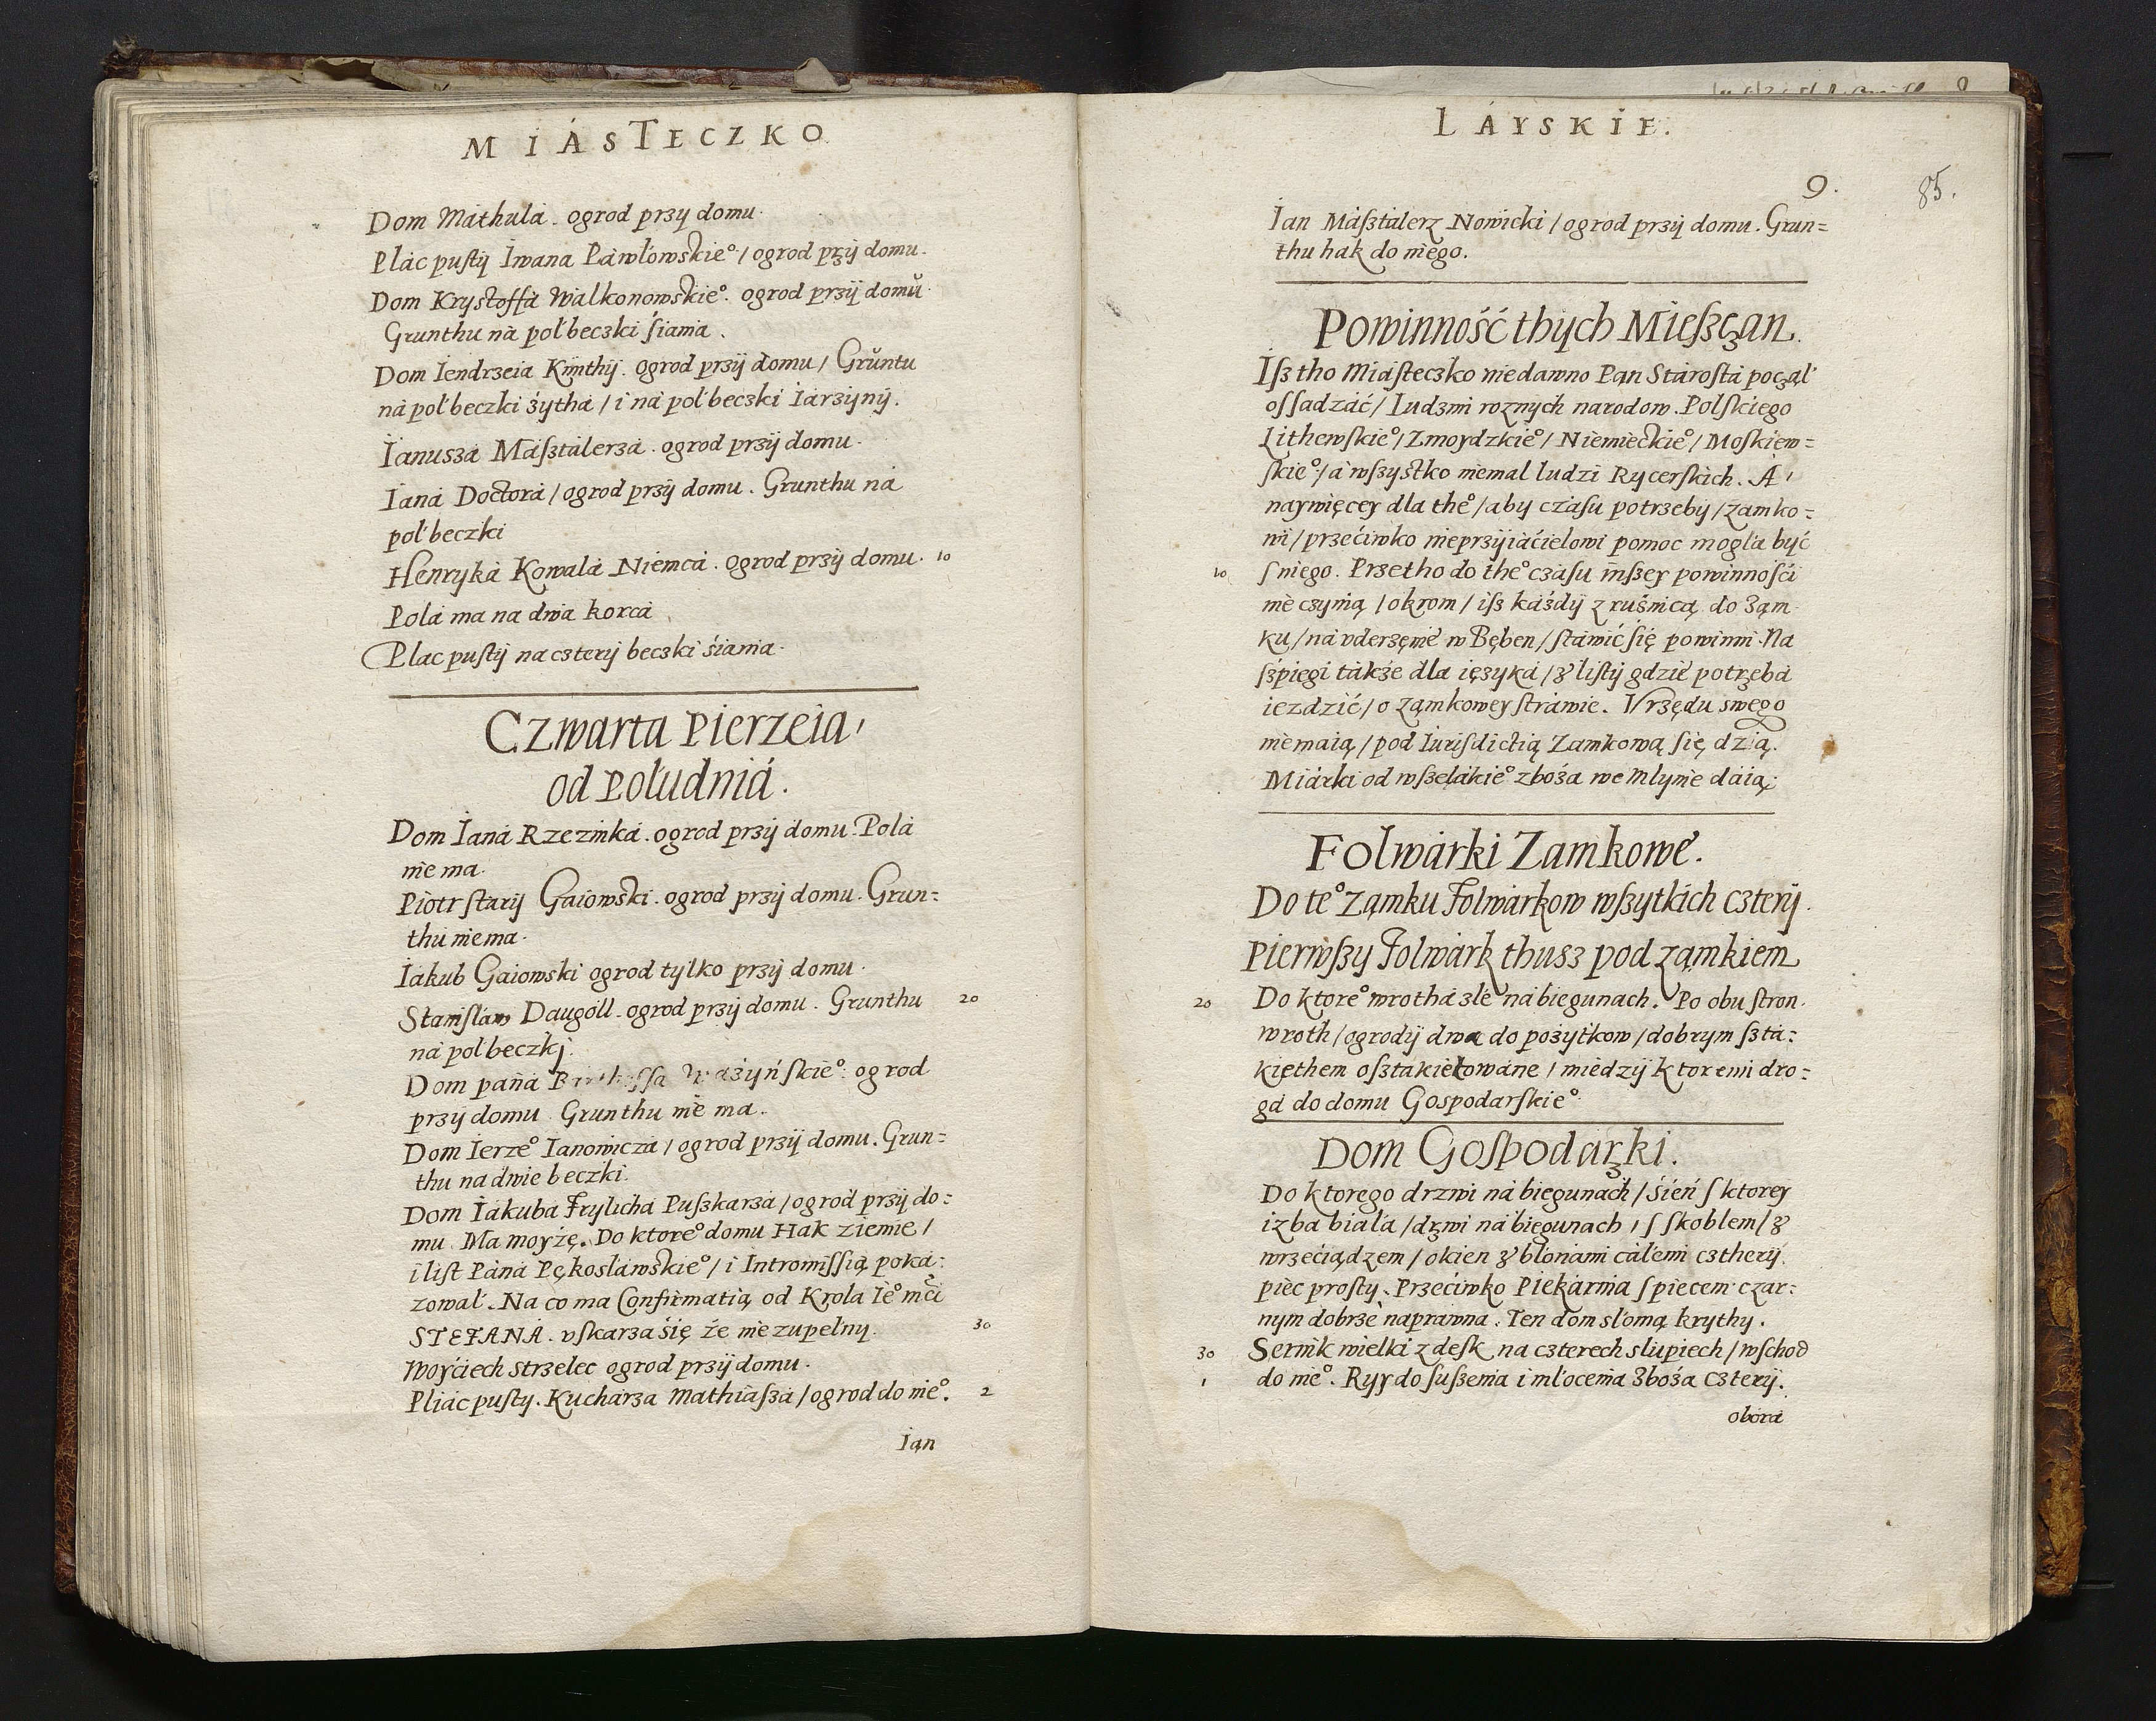 MIÁSTECZKO
Dom Máthulá. ogrod przy domu.
Plác pustÿ Iwana Páwłowskie° / ogrod przÿ domu.
Dom Krystoffá Walkonowskie°. ogrod przÿ domŭ.
Grunthu ná poł beczki śiania.
Dom Iendrzeia Kinthÿ. ogrod przÿ domu / Grŭntu
ná poł beczki żythá / i ná poł beczki Iárzyny.
Ianuszá Másztálerzá. ogrod przÿ domu.
Ianá Doctorá / ogrod przÿ domu. Grunthu ná
poł beczki
Henryká Kowalá Niemcá. ogrod przÿ domu. 10
Polá ma na dwá korcá
Plac pustÿ na czterÿ beczki śiania.
Czwarta Pierzeia,
od Południá.
Dom Ianá Rzezinká. ogrod przÿ domu. Polá
nie ma.
Piotr starÿ Gaiowski. ogrod przÿ domu. Grun=
thu niema.
Iákub Gaiowski ogrod tylko przÿ domu.
Stanisláw Daugoll. ogrod przÿ domu. Grunthu 20
ná poł beczki.
Dom paná ogrod
przÿ domu. Grunthu nie ma.
Dom Ierze° Ianowicza / ogrod przÿ domu. Grun=
thu na dwie beczki.
Dom Iákubá Frylichá Puszkarzá / ogrod przÿ do=
mu. Ma moyżę. Do ktore° domu Hak ziemie /
i list Páná Pękosláwskie° / i Intromissią poká=
zował. Na co ma Confirmatią od Krola Ie° mći
STEFANA. vskarza się że nie zupełny. 30
Woyćiech strzelec ogrod przÿ domu.
Pliác pusty. Kuchárzá Mathiászá / ogrod do nie°. 2
Ian
LÁYSKIE.
9.
85.
Ian Másztálerz Nowicki / ogrod przÿ domu. Grun=
thu hak do niego.
Powinność thÿch Mieszczan.
Isz tho Miásteczko niedawno Pan Stárostá począł
ossadzáć / ludzmi roznych narodow. Polskiego
Lithewskie° / Zmoydzkie° / Niemieckie° / Moskiew=
skie° / a wszystko niemal ludzi Rycerskich. A,
naywięcey dla the° / aby czásu potrzeby / zamko=
wi / przećiwko nieprzÿiáćielowi pomoc mogłá być
10 s niego. Przetho do the° czásu inszey powinnośći
nie czynią / okrom / isz káżdÿ z ruśnicą do Zam
ku / ná vderzęnie w Bęben / stáwić się powinni. Na
szpiegi tákże dla ięzyká / z listÿ gdzie potrzebá
iezdzić / o zamkowey stráwie. Vrzędu swego
niemaią / pod Iurisdictią Zamkową się dzią.
Miárki od wszelákie° zbożá we Mlynie dáią.
Folwárki Zamkowe.
Do te° Zamku Folwárkow wszytkich czterÿ.
Pierwszy Folwárk thusz pod zamkiem
20 Do ktore° wrothá złe ná biegunach. Po obu stron
wroth / ogrodÿ dwa do pożytkow / dobrym sztá=
kiethem osztákietowáne / miedzÿ ktoremi dro=
gá do domu Gospodarskie°
Dom Gospodárzki.
Do ktorego drzwi ná biegunach / śień s ktorey
izba biała / drzwi ná biegunach, s skoblem / z
wrzećiądzem / okien z błonami cáłemi czterÿ.
piec prosty. Przećiwko Piekárnia s piecem czar=
nym dobrze náprawna. Ten dom słomą krythy.
30 Sernik wielki z desk na czterech slupiech / wschod
1 do nie°. Ryy do suszenia i młocenia Zbożá czterÿ.
oborá